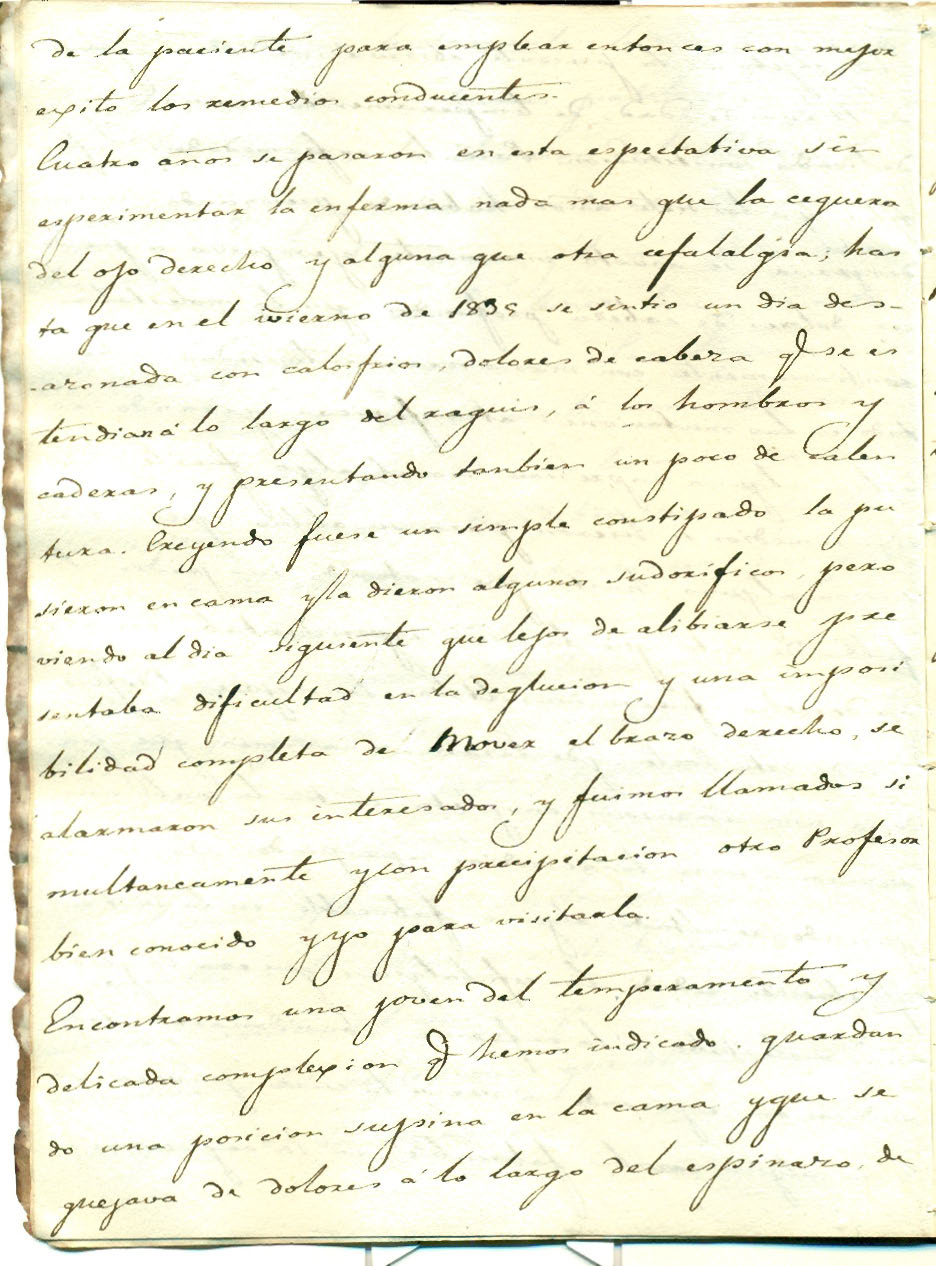 de la paciente para emplear entonces con mejor
exito los remedios conducentes.
Cuatro años se pasaron en esta espectativa sin
esperimentar la enferma nada mas que la ceguera
del ojo derecho y alguna que otra cefalalgia; has
ta que en el ivierno de 1835 se sintio un dia des-
azonada con calosfrios, dolores de cabeza q̃ se es
tendian á lo largo del raquis, á los hombros y
caderas, y presentando tanbien un poco de calen
tura. Creyendo fuese un simple constipado la pu
sieron en cama y la dieron algunos sudorificos, pero
viendo al dia siguiente que lejos de alibiarse pre
sentaba dificultad en la deglucion y una imposi
bilidad completa de mover el brazo derecho, se
alarmaron sus interesados, y fuimos llamados si
multaneamente y con precipitacion otro Profesor
bien conocido y yo para visitarla.
Encontramos una joven del temperamento y
delicada complexion q̃ hemos indicado. guardan
do una posicion supina en la cama y que se
quejava de dolores á lo largo del espinazo, de